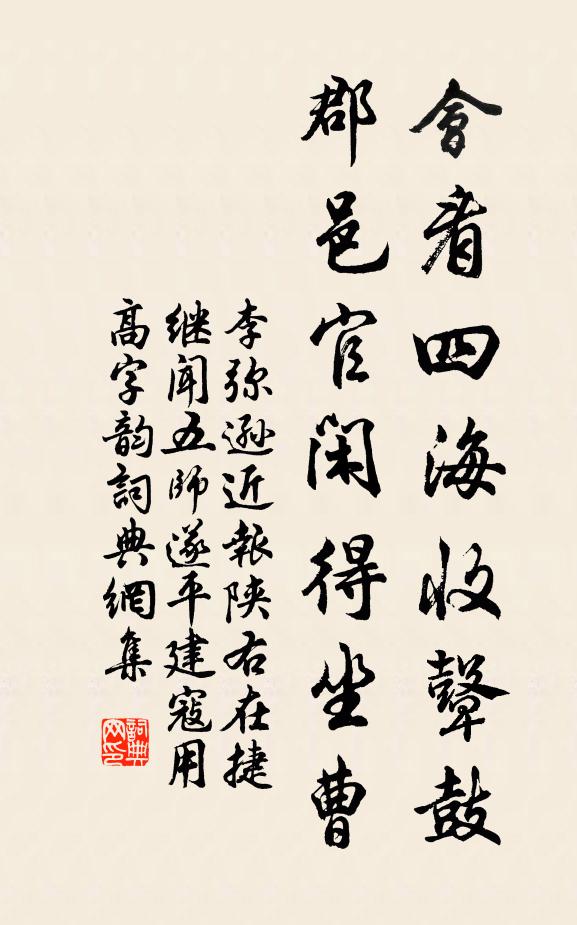 會看四海收鼙鼓
郡邑官閑得坐曹
李弥遜近報陝右在捷
继闻五師遂平建寇用
高字韵詞典網集
詞典网印